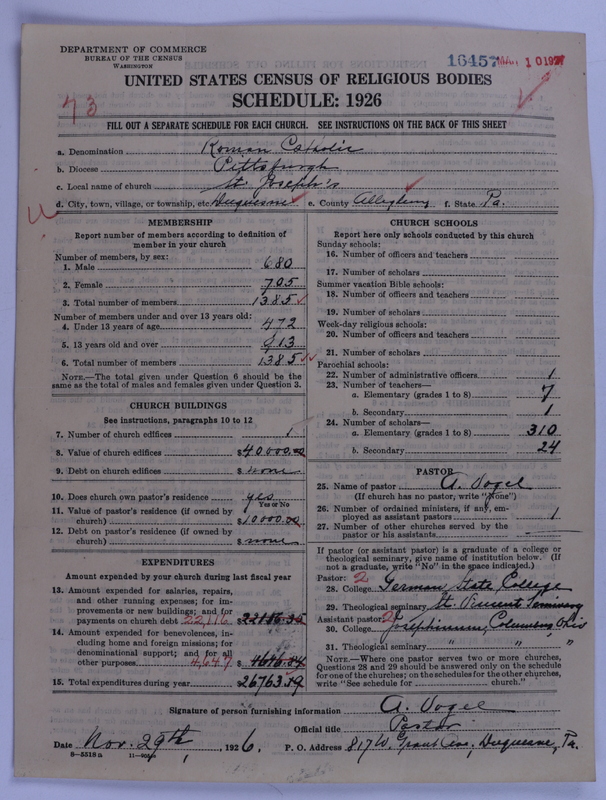 DEPARTMENT OF COMMERCE
BUREAU OF THE CENSUS
WASHINGTON
16457 MAR 10 1927
UNITED STATES CENSUS OF RELIGIOUS BODIES
SCHEDULE: 1926
73
FILL OUT A SEPARATE SCHEDULE FOR EACH CHURCH. SEE INSTRUCTIONS ON THE BACK OF THIS SHEET
a. Denomination Roman Catholic
b. Diocese Pittsburgh
c. Local name of church St. Joseph's
d. City, town, village, or township, etc. Duquesne e. County Allegheny f. State Pa.
MEMBERSHIP
Report number of members according to definition of
member in your church
Number of members, by sex:
1. Male 680
2. Female 705
3. Total number of members 1385
Number of members under and over 13 years old:
4. Under 13 years of age 472
5. 13 years old and over 913
6. Total number of members 1385
NOTE.—The total given under Question 6 should be the
same as the total of males and females given under Question 3.
CHURCH BUILDINGS
See instructions, paragraphs 10 to 12
7. Number of church edifices 1
8. Value of church edifices $40000.00
9. Debt on church edifices $ none
10. Does church own pastor's residence yes
Yes or No
11. Value of pastor's residence (if owned by
church) $10000.00
12. Debt on pastor's residence (if owned by
church) $ none
EXPENDITURES
Amount expended by your church during last fiscal year
13. Amount expended for salaries, repairs,
and other running expenses; for im-
provements or new buildings; and for
payments on church debt 22,116 $
14. Amount expended for benevolences, in-
cluding home and foreign missions; for
denominational support; and for all
other purposes 4,647 $
15. Total expenditures during year 26763.19
CHURCH SCHOOLS
Report here only schools conducted by this church
Sunday schools:
16. Number of officers and teachers
17. Number of scholars
Summer vacation Bible schools:
18. Number of officers and teachers
19. Number of scholars
Week-day religious schools:
20. Number of officers and teachers
21. Number of scholars
Parochial schools:
22. Number of administrative officers 1
23. Number of teachers—
a. Elementary (grades 1 to 8) 7
b. Secondary 1
24. Number of scholars—
a. Elementary (grades 1 to 8) 310
b. Secondary 24
PASTOR
25. Name of pastor A. Vogel
(If church has no pastor, write "None")
26. Number of ordained ministers, if any, em-
ployed as assistant pastors 1
27. Number of other churches served by the
pastor or his assistants
If pastor (or assistant pastor) is a graduate of a college or
theological seminary, give name of institution below. (If
not a graduate, write "No" in the space indicated.)
Pastor: 2
28. College German State College
29. Theological seminary St. Vincent Seminary
Assistant pastor: 2
30. College Josephinum, Columbus, Ohio
31. Theological seminary " " "
NOTE.—Where one pastor serves two or more churches,
Questions 28 and 29 should be answered only on the schedule
for one of the churches; on the schedules for the other churches,
write "See schedule for church."
Signature of person furnishing information A. Vogel
Official title Pastor
Date Nov. 29th, 1926. P. O. Address 817 W. Grant Ave., Duquesne, Pa.
8—5518a